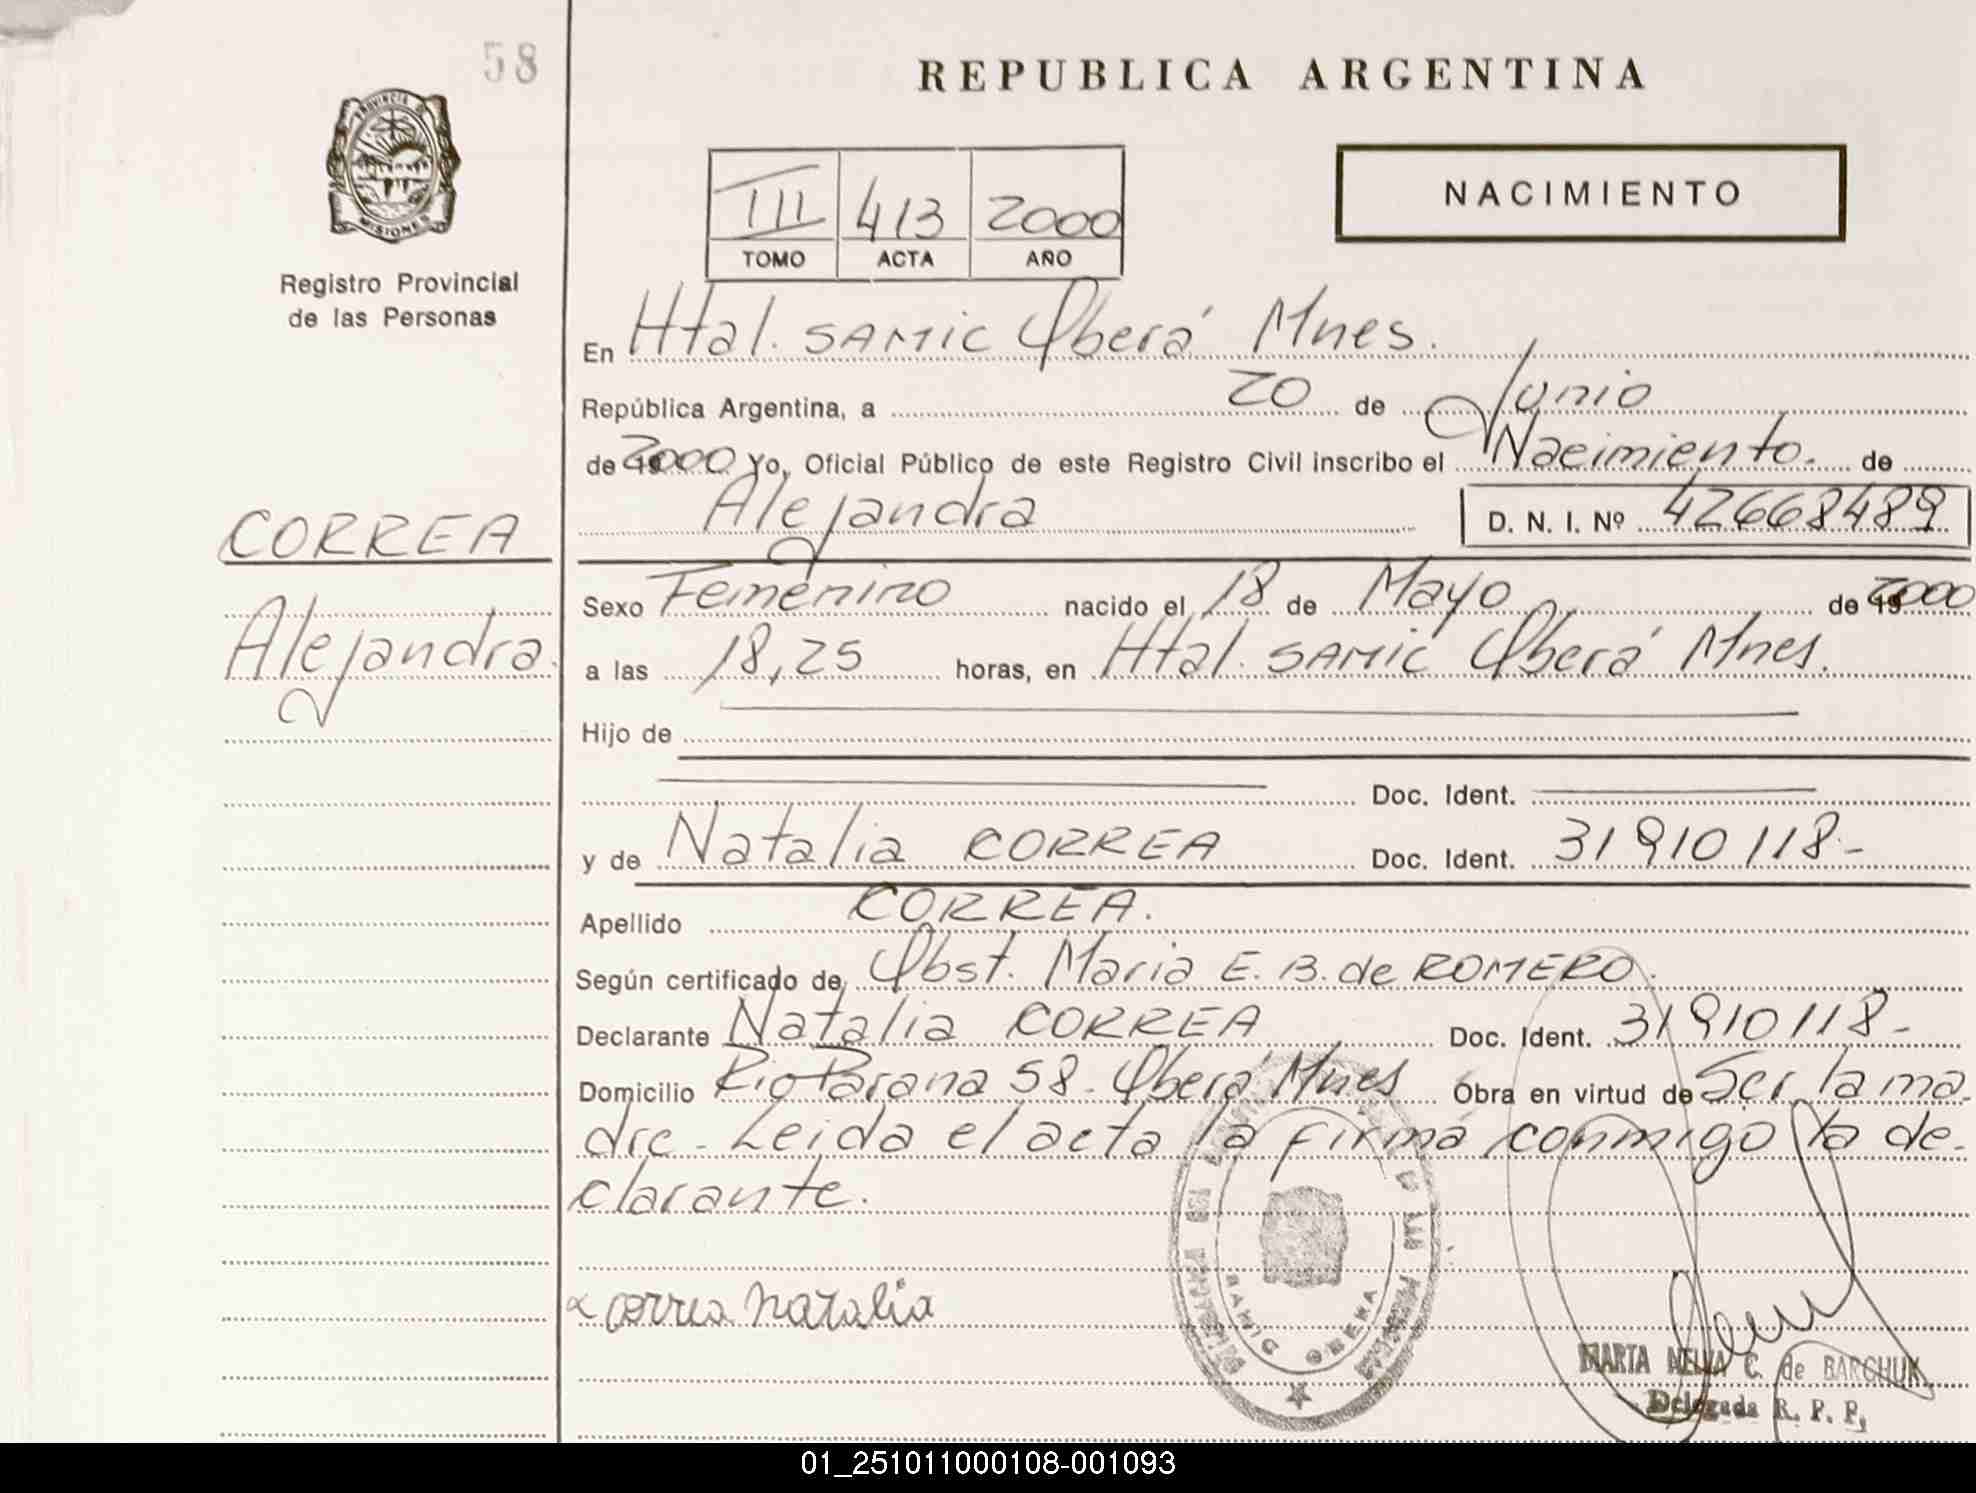 58
REPUBLICA ARGENTINA
PROVINCIA DE
MISIONES
Registro Provincial
de las Personas
III 413 2000
TOMO ACTA AÑO
NACIMIENTO
En Htal. SAMIC Oberá Mnes.
República Argentina, a 20 de Junio
de 19 2000 Yo, Oficial Público de este Registro Civil inscribo el Nacimiento. de
Alejandra D. N. I. Nº 42668489
CORREA
Alejandra.
Sexo Femenino nacido el 18 de Mayo de 19 2000
a las 18,25 horas, en Htal. SAMIC Oberá Mnes.
Hijo de
Doc. Ident.
y de Natalia CORREA Doc. Ident. 31910118-
Apellido CORREA.
Según certificado de Obst. Maria E. B. de ROMERO.
Declarante Natalia CORREA Doc. Ident. 31910118-
Domicilio Rio Parana 58- Oberá Mnes Obra en virtud de Ser la ma
dre - Leida el acta la firma conmigo la de-
clarante.
correa natalia
SAMIC OBERA
MARTA NELVA C. de BARCHUK
Delegada R. P. P.
01_251011000108-001093